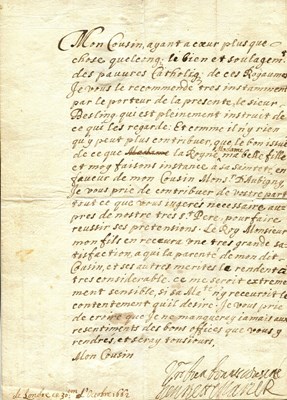 Mon Cousin, ayant a coeur plus que
chose quelconq. le bien et soulagemt.
des pauures Catholiq. de ces Royaumes
Je vous le recommende tres instamment
par le porteur de la presente, le sieur
Besling qui est pleinement instruit de
ce qui les regarde. Et comme il n'y rien
qui y peut plus contribuer, que le bon issue
de ce que Madame la Royne, ma belle fille
et moy faisons instance a sa
faueur de mon Cousin Monsr. D'Aubigny
Je vous prie de contribuer de vostre part
tout ce que vous iugeres necessaire au
pres de nostre tres St. Pere, pour faire
reussir ses pretensions. Le Roy Monsieur
mon fils en receura vne tres grande sa
tisfaction, a qui la parenté de mon dit
Cosin, et ses autres merites le rendent
tres considerable. Ce me serit extreme
ment sensible, si il n'y receurit le
contentement qu'il desire. Je vous prie
de croire que Je ne manquerey jamait aux
resentiments des bons offices que vous y
rendres, et serey tousiours,
Mon Cousin
Vostre
de Londre ce 1662